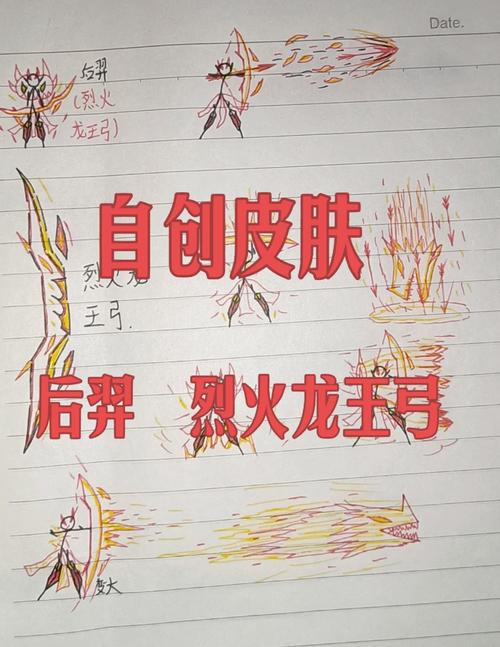 Date.
后羿
(烈火
龙王弓)
自创皮肤
烈火龙
王弓.
后羿 烈火龙王弓
变大